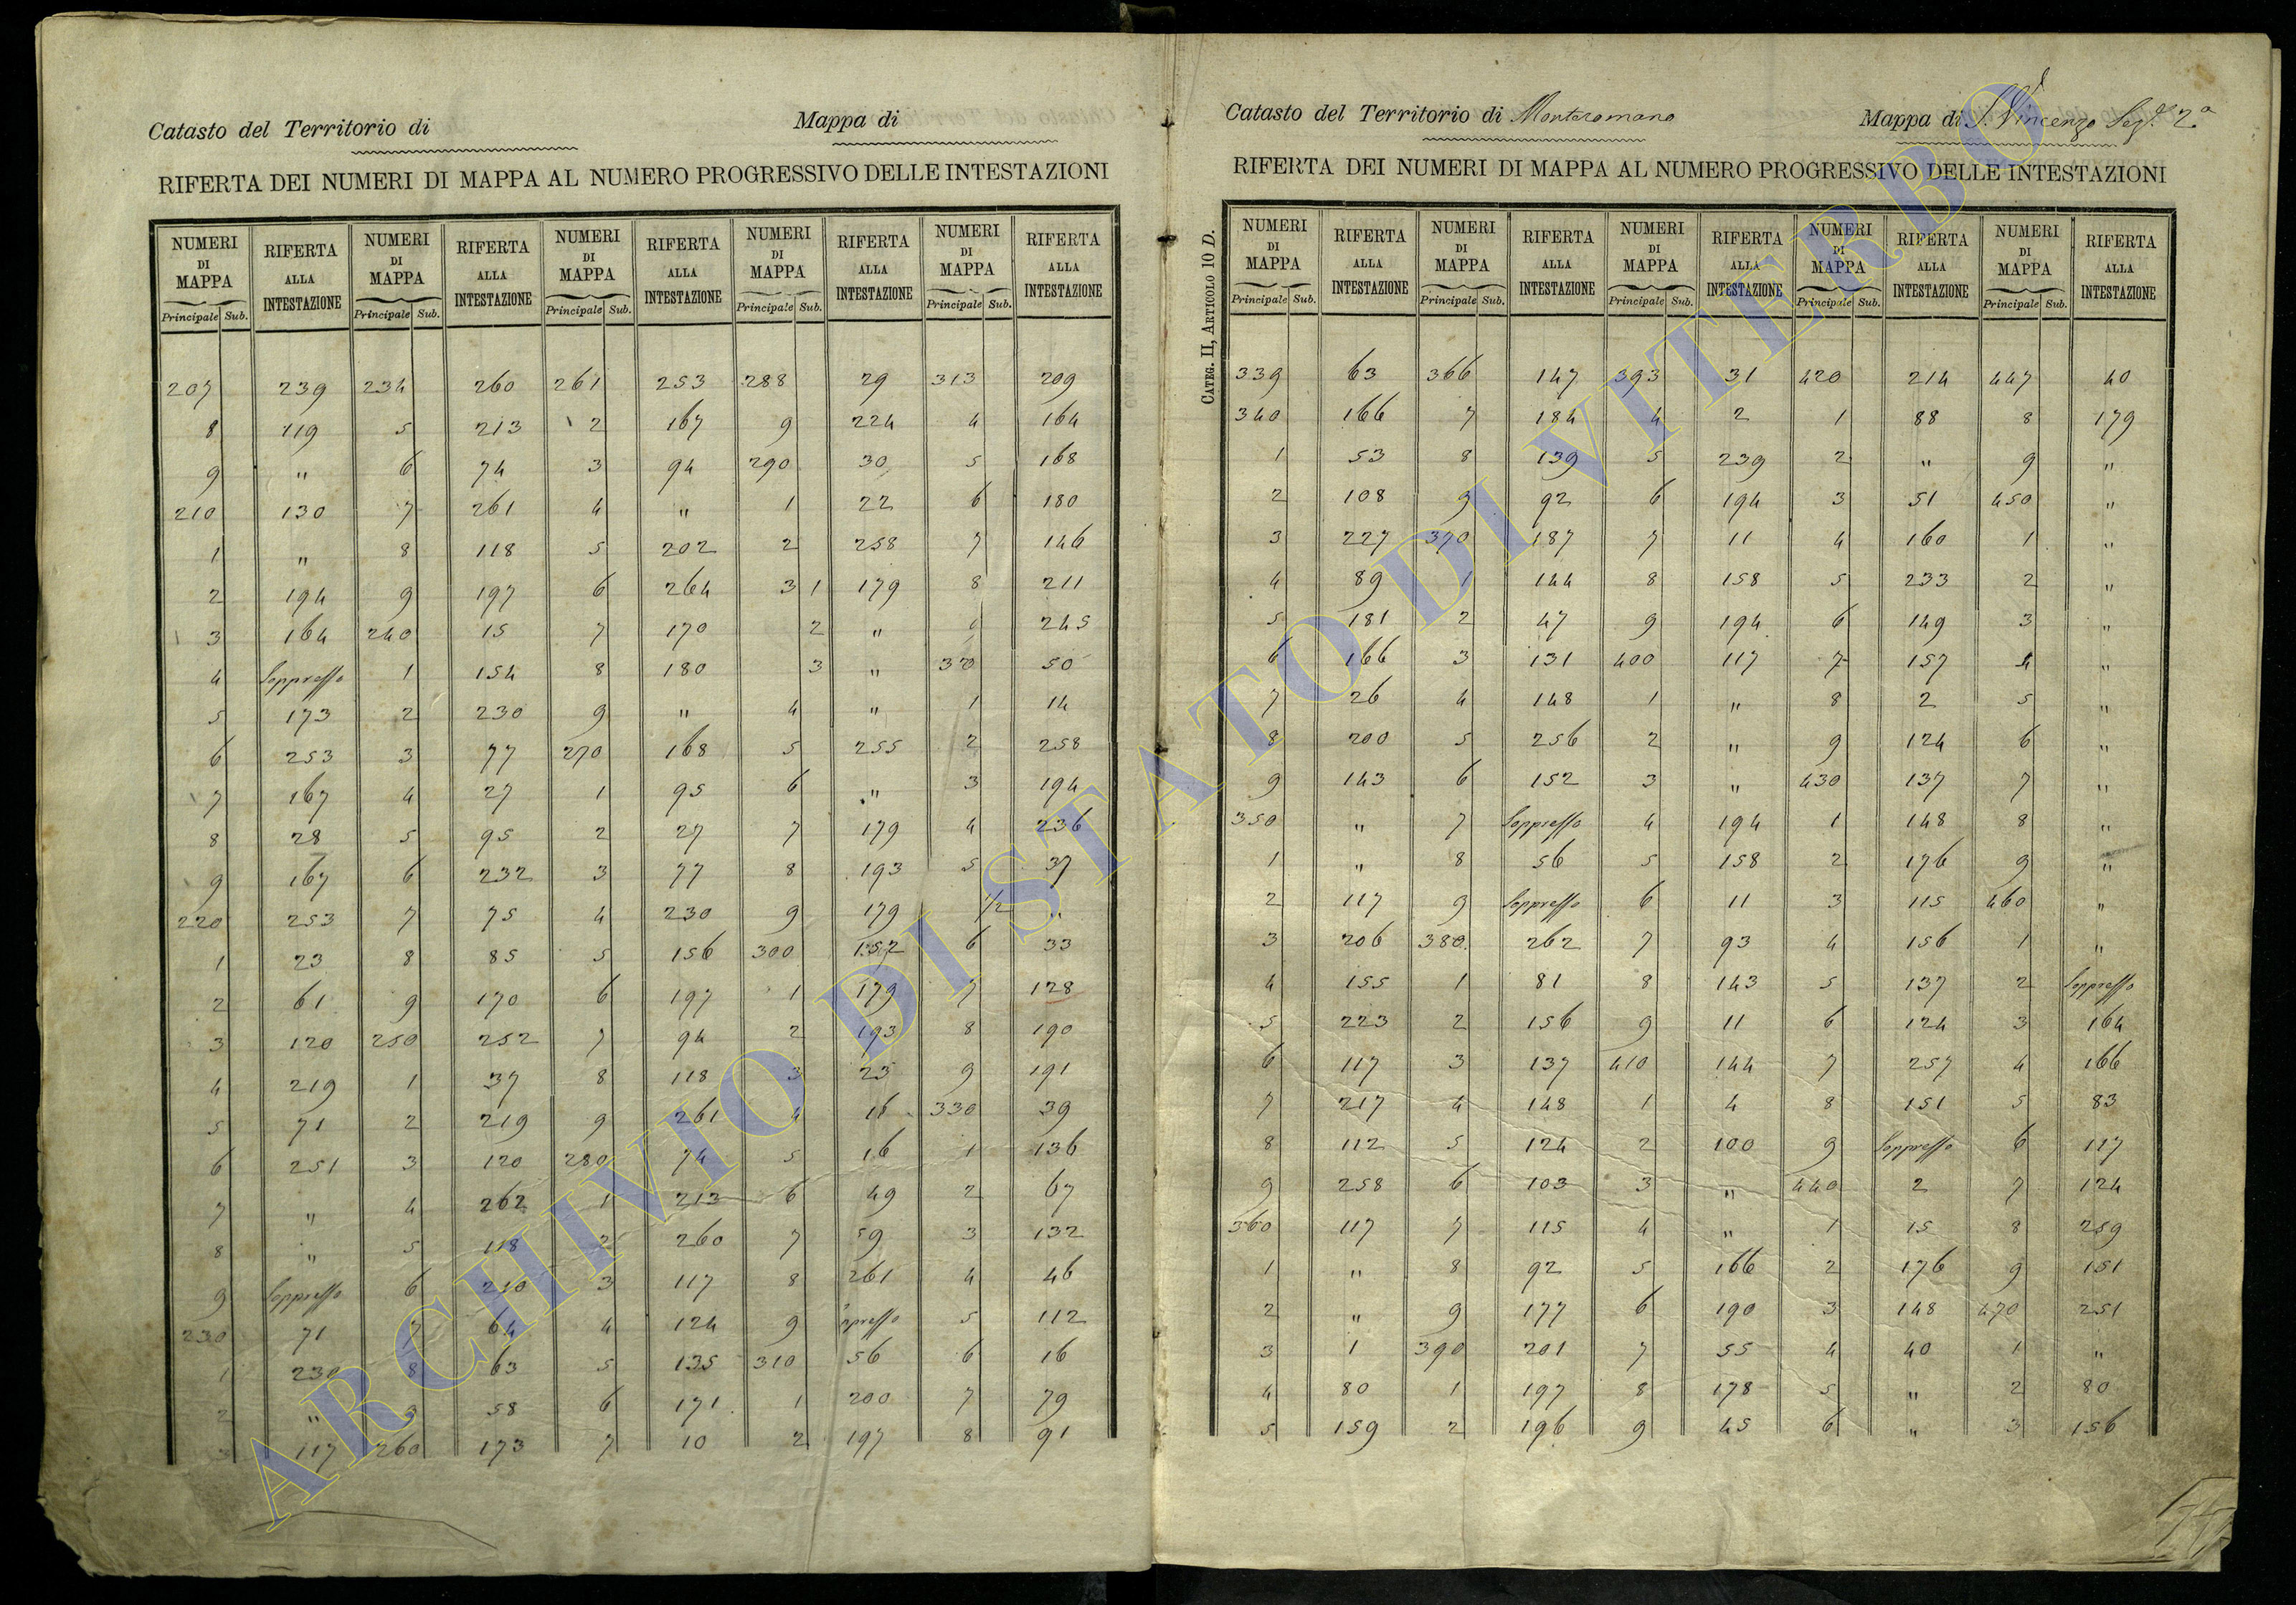 Catasto del Territorio di
Mappa di
RIFERTA DEI NUMERI DI MAPPA AL NUMERO PROGRESSIVO DELLE INTESTAZIONI
NUMERI DI MAPPA RIFERTA ALLA INTESTAZIONE NUMERI DI MAPPA RIFERTA ALLA INTESTAZIONE NUMERI DI MAPPA RIFERTA ALLA INTESTAZIONE NUMERI DI MAPPA RIFERTA ALLA INTESTAZIONE NUMERI DI MAPPA RIFERTA ALLA INTESTAZIONE
Principale Sub. Principale Sub. Principale Sub. Principale Sub. Principale Sub.
207 239 234 260 261 253 288 29 313 209
8 119 5 213 2 167 9 224 4 164
9 " 6 74 3 94 290 30 5 168
210 130 7 261 4 " 1 22 6 180
1 " 8 118 5 202 2 258 7 146
2 194 9 197 6 264 3 1 179 8 211
3 164 240 15 7 170 2 " 245
4 Soppresso 1 154 8 180 3 " 320 50
5 173 2 230 9 " 4 " 1 14
6 253 3 77 270 168 5 255 2 258
7 167 4 27 1 95 6 " 3 194
8 28 5 95 2 27 7 179 4 236
9 167 6 232 3 77 8 193 5 37
220 253 7 75 4 230 9 179 1/2 "
1 23 8 85 5 156 300 152 6 33
2 61 9 170 6 197 1 179 7 128
3 120 250 252 7 94 2 193 8 190
4 219 1 37 8 118 3 23 9 191
5 71 2 219 9 261 4 16 330 39
6 251 3 120 280 74 5 16 1 136
7 " 4 262 1 213 6 49 2 67
8 " 5 118 2 260 7 59 3 132
9 Soppresso 6 210 3 117 8 261 4 46
230 71 7 64 4 124 9 Soppresso 5 112
1 230 8 63 5 135 310 56 6 16
2 " 9 58 6 171 1 200 7 79
3 117 260 173 7 10 2 197 8 91
Catasto del Territorio di Monteromano
Mappa di S. Vincenzo Sez. 2a
RIFERTA DEI NUMERI DI MAPPA AL NUMERO PROGRESSIVO DELLE INTESTAZIONI
CATEG. II, ARTICOLO 10 D.
NUMERI DI MAPPA RIFERTA ALLA INTESTAZIONE NUMERI DI MAPPA RIFERTA ALLA INTESTAZIONE NUMERI DI MAPPA RIFERTA ALLA INTESTAZIONE NUMERI DI MAPPA RIFERTA ALLA INTESTAZIONE NUMERI DI MAPPA RIFERTA ALLA INTESTAZIONE
Principale Sub. Principale Sub. Principale Sub. Principale Sub. Principale Sub.
339 63 366 147 393 31 420 214 447 40
340 166 7 184 4 2 1 88 8 179
1 53 8 139 5 239 2 " 9 "
2 108 9 92 6 194 3 51 450 "
3 227 370 187 7 11 4 160 1 "
4 89 1 144 8 158 5 233 2 "
5 181 2 47 9 194 6 149 3 "
6 166 3 131 400 117 7 157 4 "
7 26 4 148 1 " 8 2 5 "
8 200 5 256 2 " 9 124 6 "
9 143 6 152 3 " 430 137 7 "
350 " 7 Soppresso 4 194 1 148 8 "
1 " 8 56 5 158 2 176 9 "
2 117 9 Soppresso 6 11 3 115 460 "
3 206 380 262 7 93 4 156 1 "
4 155 1 81 8 143 5 137 2 Soppresso
5 223 2 156 9 11 6 124 3 164
6 117 3 137 410 144 7 257 4 166
7 217 4 148 1 4 8 151 5 83
8 112 5 124 2 100 9 Soppresso 6 117
9 258 6 103 3 " 440 2 7 124
360 117 7 115 4 " 1 15 8 259
1 " 8 92 5 166 2 176 9 151
2 " 9 177 6 190 3 148 470 251
3 1 390 201 7 55 4 40 1 "
4 80 1 197 8 178 5 " 2 80
5 159 2 196 9 45 6 " 3 156
ARCHIVIO DI STATO DI VITERBO